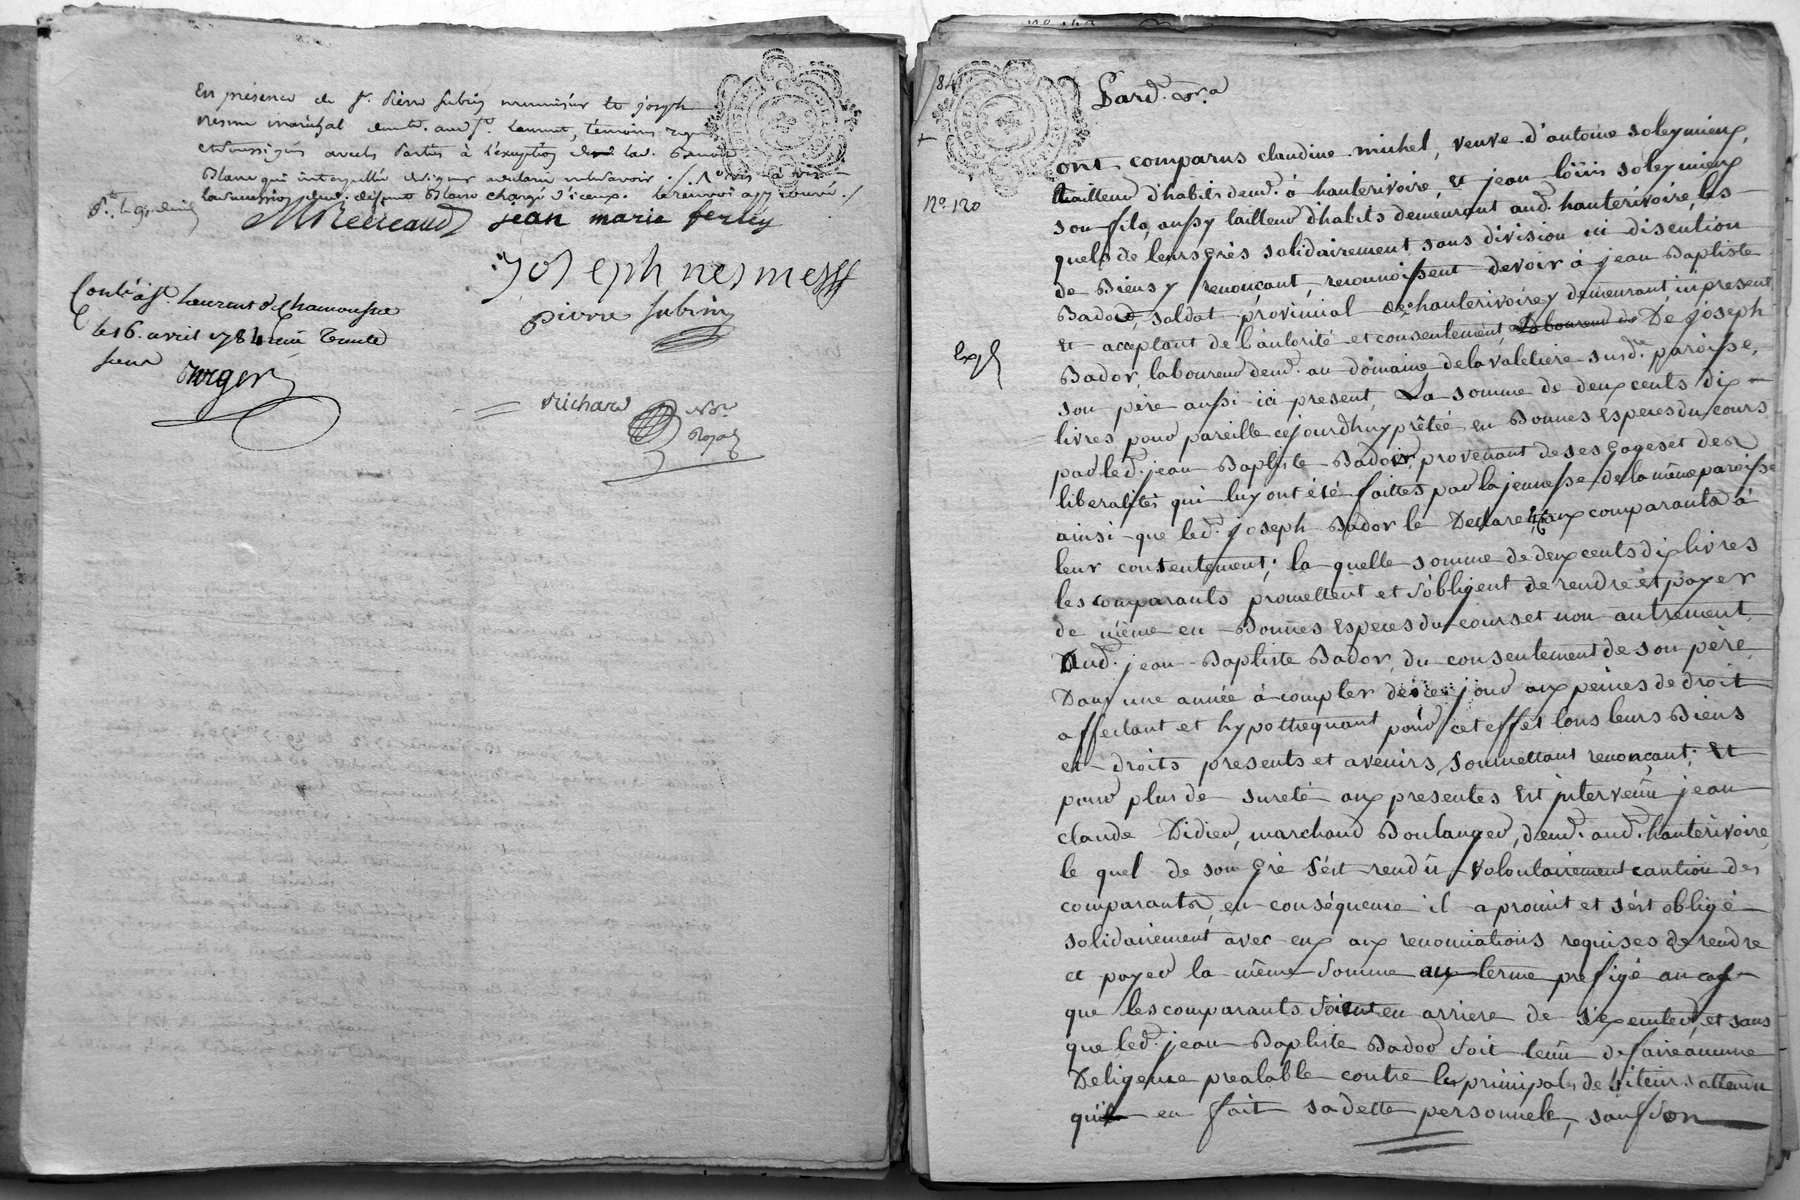 En présence de Sr. Pierre Subrin menuisier et joseph
nesme maréchal demt. aud. St. Laurent, témoins requis
et soussignés avec les parties à l'exception
Blanc qui interpellé de signer a déclaré ne le savoir
M Recreaud jean marie ferley
joseph nesmess
pierre subrin
Contlé à St. Laurent de Chamousset
le 16 avril 1784 reçu trente
sieur
Richard Nre.
Royal
84
Pard. Nre.
No. 120
ont comparus claudine michel, veuve d'antoine soleymieux,
tailleur d'habits demt. à hauterivoire, et jean loüis soleymieux
son fils, aussy tailleur d'habits demeurant aud. hauterivoire, les
quels de leurs grès solidairement sans division ni discution
de Biens y renonçant, reconnoissent devoir à jean Baptiste
Bador, soldat provincial de hauterivoire y demeurant, ici present
et acceptant de l'autorité et consentement, De joseph
Bador, laboureur demt. au domaine de la valetiere susde. paroisse,
son père aussi ici present, La somme de deux cents dix
livres pour pareille cejourd'huy prêtée en Bonnes Especes du cours
par led. jean Baptiste Bador, provenant de ses gages et des
liberalités qui luy ont été faittes par la jeunesse de la même paroisse
ainsi que led. joseph Bador le Declare aux comparants à
leur consentement; la quelle somme de deux cents dix livres
les comparants promettent et s'obligent de rendre et payer
de même en Bonnes Especes du cours et non autrement
Aud. jean Baptiste Bador, du consentement de son père,
Dans une année à compter de ce jour aux peines de droit
affectant et hypottequant pour cet effet tous leurs Biens
et droits presents et avenirs, soumettant renonçant; Et
pour plus de sureté aux presentes Est intervenü jean
claude Didier, marchand Boulanger, demt. aud. hauterivoire,
le quel de son gré s'est rendü volontairement caution des
comparants, en conséquence il a promit et s'est obligé
solidairement avec eux aux renonciations requises de rendre
et payer la même somme au terme prefigé au cas
que les comparants soient en arriere de s'executer, et sans
que led. jean Baptiste Bador soit tenü de faire aucune
Deligence prealable contre les principals debiteurs attendu
qu'il en fait sa dette personnele, sauf son